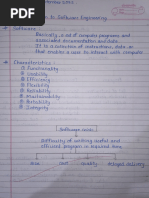 Software Engineering
* Software :
Basically, is a set of computer programs and
associated documentation and data.
It is a collection of instructions, data, or
that enable a user to interact with computer
* Characteristics :
Functionality
Usability
Efficiency
Flexibility
Reliability
Maintainability
Portability
Integrity
Software crisis
Difficulty of writing useful and
efficient program in required time.
size
cost
quality
delayed delivery